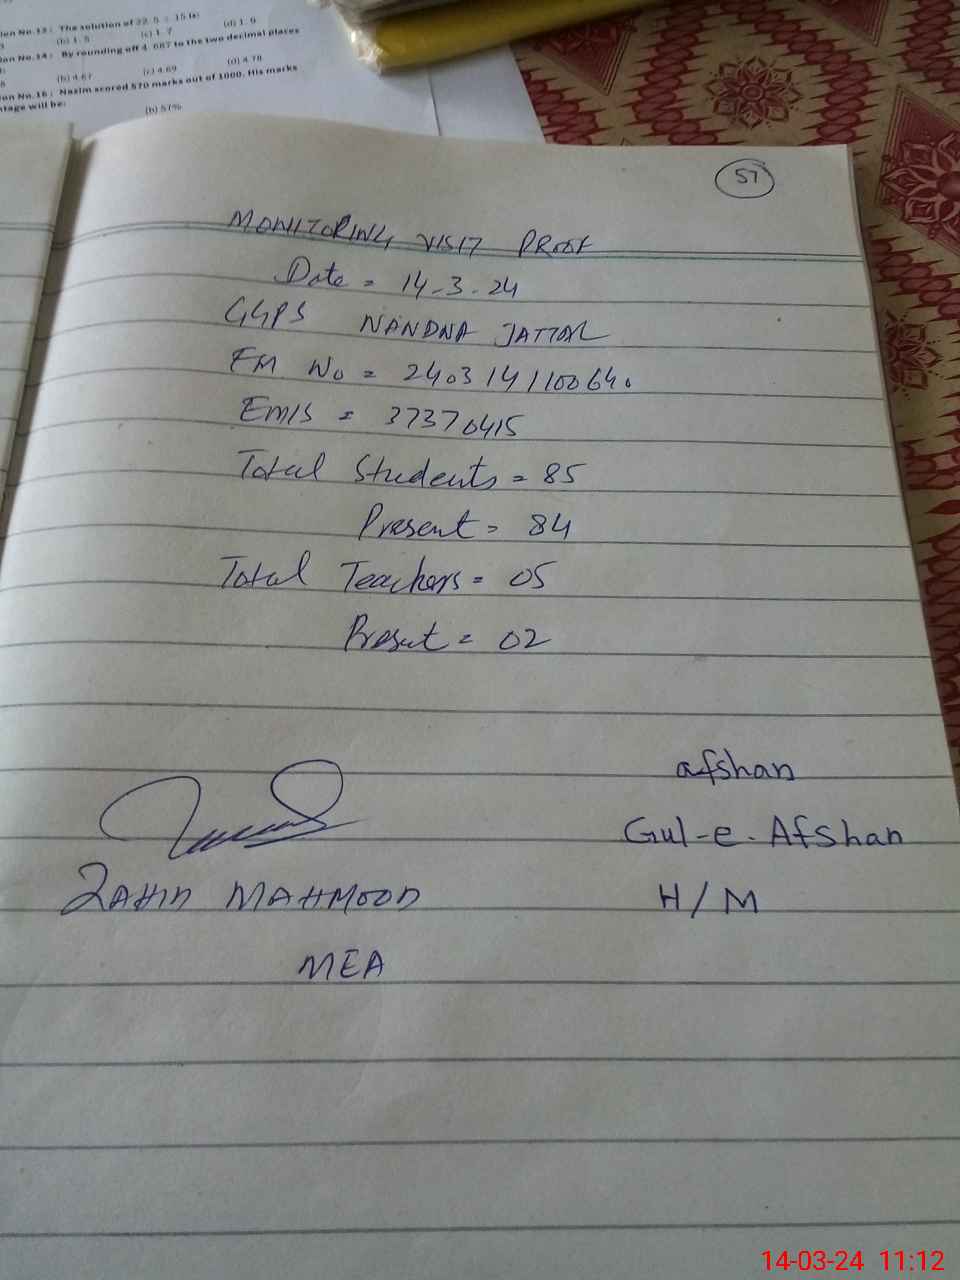 ion No.13 : The solution of 22. 5 ÷ 15 is:
(b) 1. 5 (c) 1. 7 (d) 1. 9
ion No.14 : By rounding off 4. 687 to the two decimal places
(b) 4.67 (c) 4.69 (d) 4.78
ion No.15 : Nasim scored 570 marks out of 1000. His marks
ntage will be:
(b) 57%
57
MONITORING VISIT PROOF
Date = 14-3-24
GGPS NANDNA JATTAL
FM No = 2403141100640
EMIS = 37370415
Total Students = 85
Present = 84
Total Teachers = 05
Present = 02
afshan
Gul-e-Afshan
ZAHID MAHMOOD
H/M
MEA
14-03-24 11:12